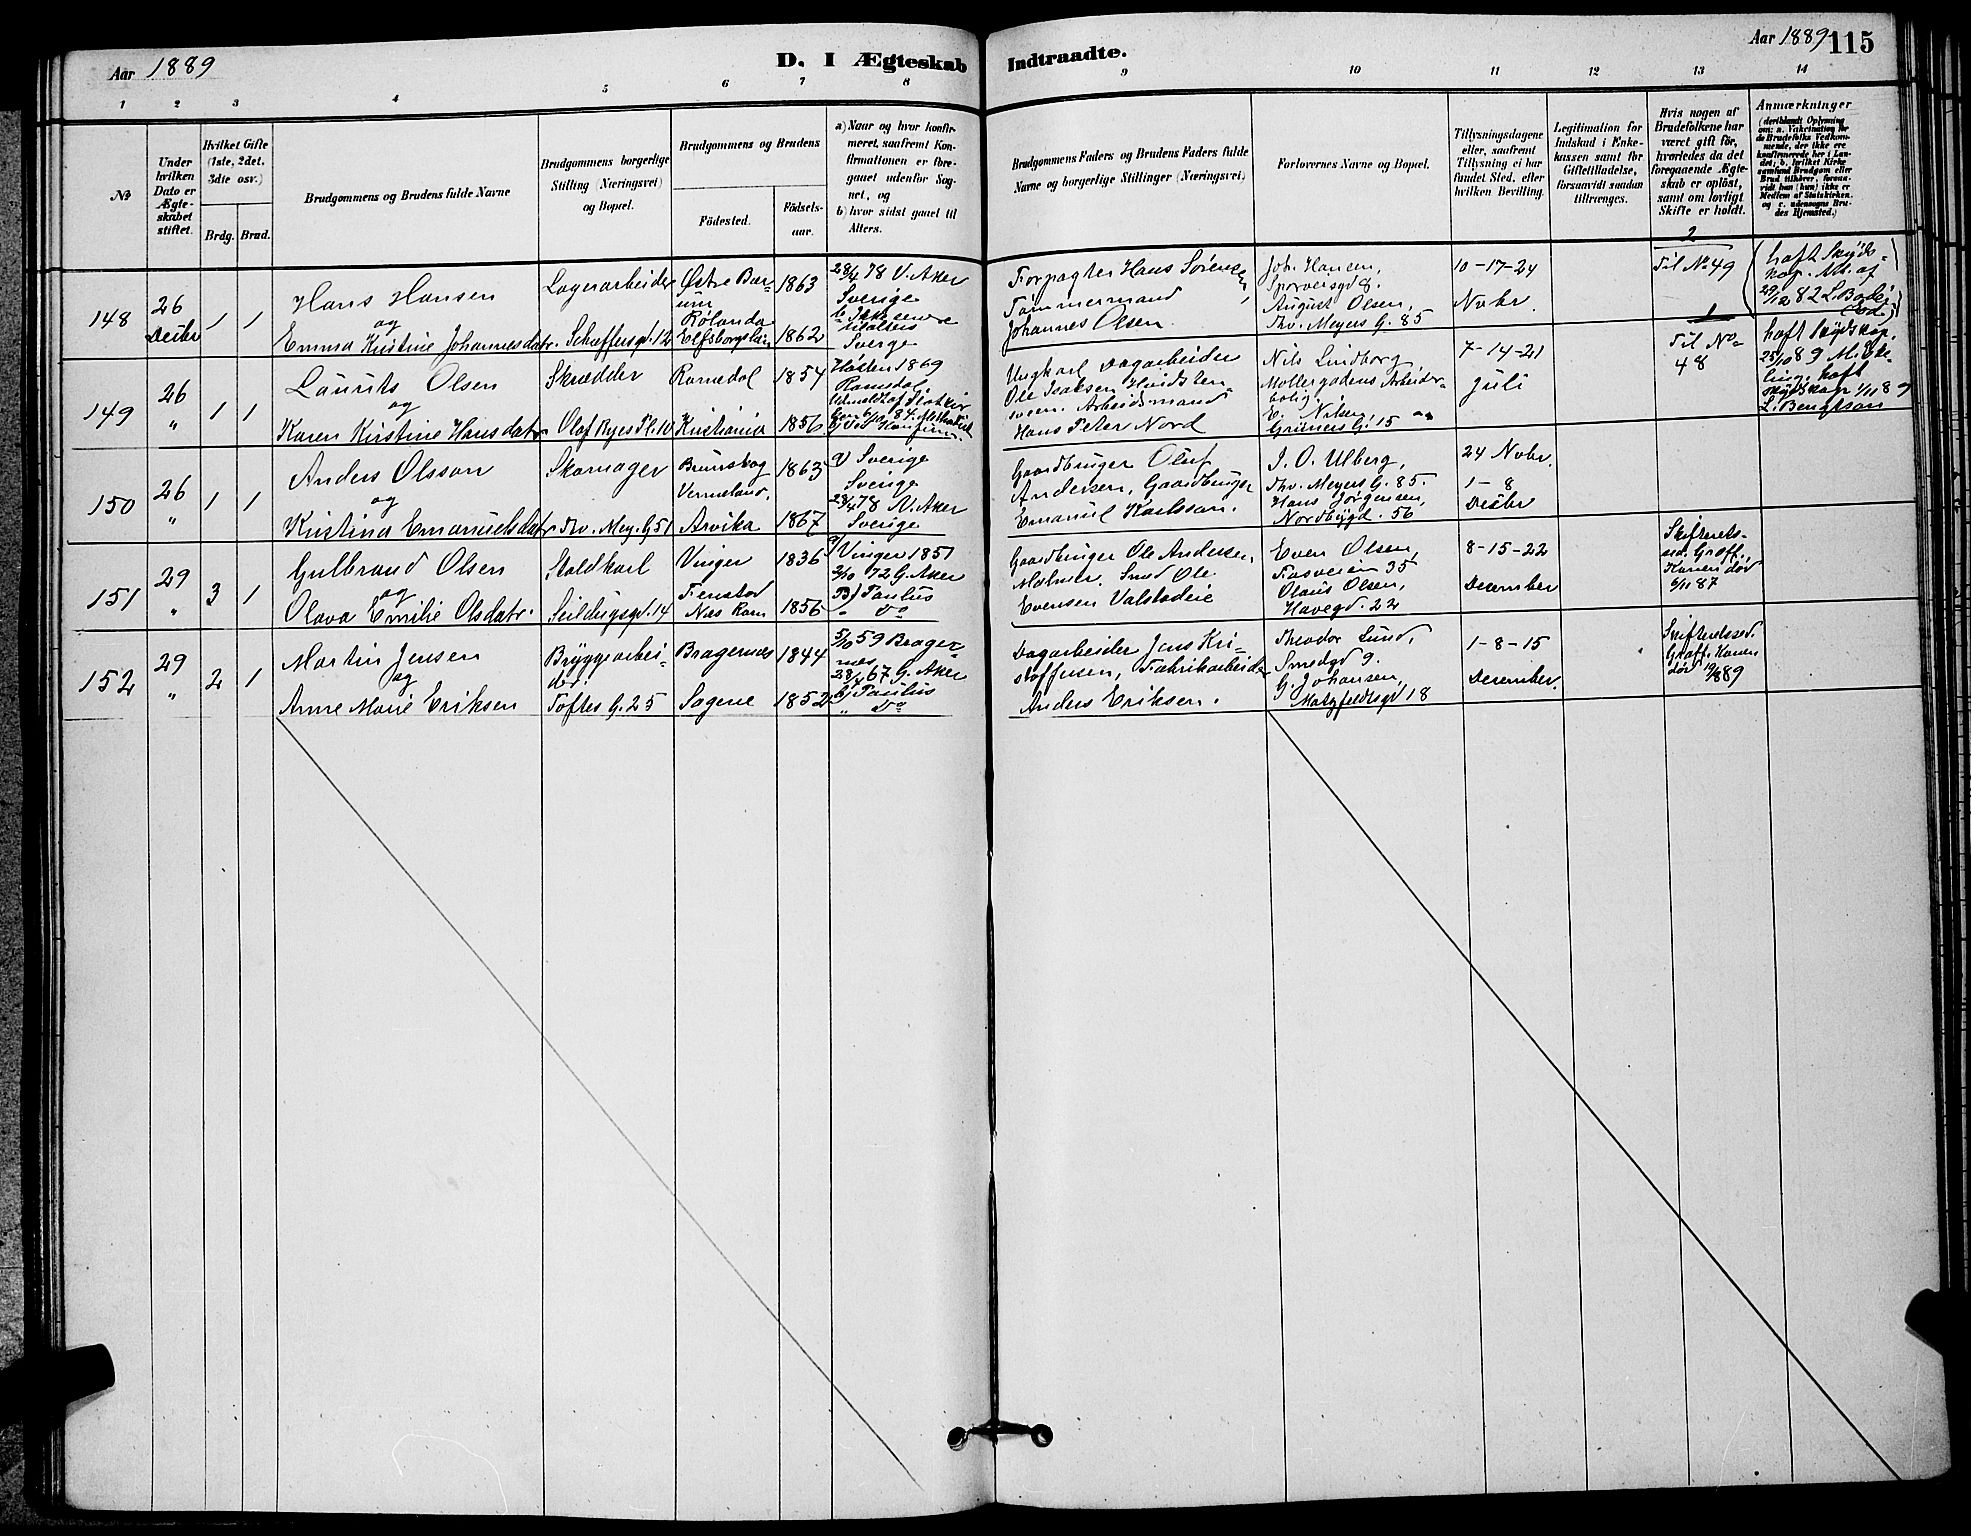 Aar 1889
D. I Ægteskab
Indtraadte.
Aar 1889
115
1 2 3 4 5 6 7 8
9 10 11 12 13 14
No
Under hvilken Dato er Ægteskabet stiftet.
Hvilket Gifte (1ste, 2det, 3die osv.)
Brdg. Brud.
Brudgommens og Brudens fulde Navne
Brudgommens borgerlige Stilling (Næringsvei) og Bopæl.
Brudgommens og Brudens
Födested.
Födselsaar.
a) Naar og hvor konfirmeret, saafremt Konfirmationen er foregaaet udenfor Sognet, og
b) hvor sidst gaaet til Alters.
Brudgommens Faders og Brudens Faders fulde Navne og borgerlige Stillinger (Næringsvei)
Forlovernes Navne og Bopæl.
Tillysningsdagene eller, saafremt Tillysning ei har fundet Sted, efter hvilken Bevilling.
Legitimation for Indskud i Enkekassen samt for Giftetilladelse, forsaavidt saadan tiltrænges.
Hvis nogen af Brudefolkene har været gift før, hvorledes da det foregaaende Ægteskab er oplöst, samt om lovligt Skifte er holdt.
Anmærkninger
148
26 Desbr
1 1
Hans Hansen
og
Emma Kristine Johannesdatr.
Lagerarbeider
Schæffersgd. 12
Østre Bærum
Rølanda
Elfsborgslän
1863
1862
28/4 78 V. Aker
Sverige
Sverge
Forpagter Hans Sörensen
Tømmermand
Johannes Olsen.
Joh. Hansen,
August Olsen,
Thv. Meyers G. 85
10-17-24
Novbr.
2
Til No 49
haft Skyds-
kop. Att. af
29/12 82
149
26 "
1 1
Laurits Olsen
og
Karen Kristine Hansdatr.
Skrædder
Olaf Ryes Pl. 10
Romedal
Kristiania
1854
1856
Høsten 1869
Romedal
Ungkarl Dagarbeider
Ole Isaksen
Arbeidsmand
Hans Peter Nord
Nils Lindborg
Møllergadens Arbeider-
bolig.
Grüners G. 15
7-14-21
Juli
1
Til No
48
haft Skydskop.
25/10 89
haft
1/11 89
L. Bengtson
150
26 "
1 1
Anders Olsson
og
Kristina Emanuelsdatr
Skomager
Thv. Mey. G. 51
Brunskog
Vermeland,
Arvika
1863
1867
Sverige
Sverige
28/4 78 V. Aker
Sverige
Gaardbruger Oluf
Andersen, Gaardbruger
Emanuel Karlsson.
J. O. Ulberg,
Thv. Meyers G. 85.
Hans Jørgensen,
Nordbygd. 56
24 Novbr.
1-8
Desbr
151
29 "
3 1
Gulbrand Olsen
og
Olava Emilie Olsdatr.
Staldkarl
Seildugsgd. 14
Vinger
Fenstad
Næs Rom
1836
1856
Vinger 1851
72 G. Aker
B) Paulus
" Do
Gaardbruger Ole Andersen,
Smed Ole
Evensen Valstadeie
Even Olsen,
Fosveien 35
Olaus Olsen,
Havegd. 22
8-15-22
December
Skifterets-
Konen död
6/11 87
152
29 "
2 1
Martin Jensen
og
Anne Marie Eriksen
Bryggearbei-
der.
Toftes G. 25
Bragernæs
Sagene
1844
1852
5/10 59 Brager-
næs
67 G. Aker
b) Paulus
" Do
Dagarbeider Jens Kri-
stoffersen, Fabrikarbeider
Anders Eriksen.
Theodor Lund,
Smedgd 9.
G. Johansen,
Motzfeldtsgd 18
1-8-15
December.
Skifteretssed.
Konen
död 19/8 89